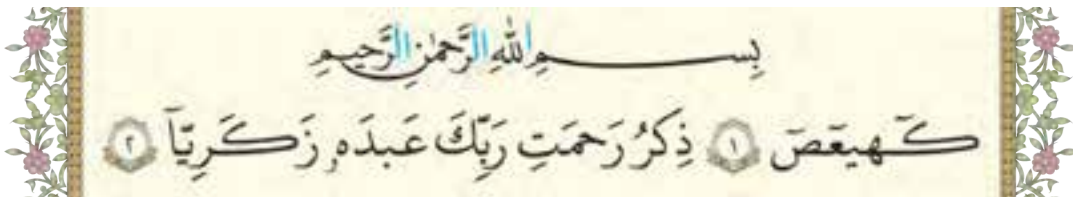 بِسْمِ اللَّهِ الرَّحْمَٰنِ الرَّحِيمِ
كٓهيعٓصٓ ١ ذِكْرُ رَحْمَتِ رَبِّكَ عَبْدَهُۥ زَكَرِيَّآ ٢